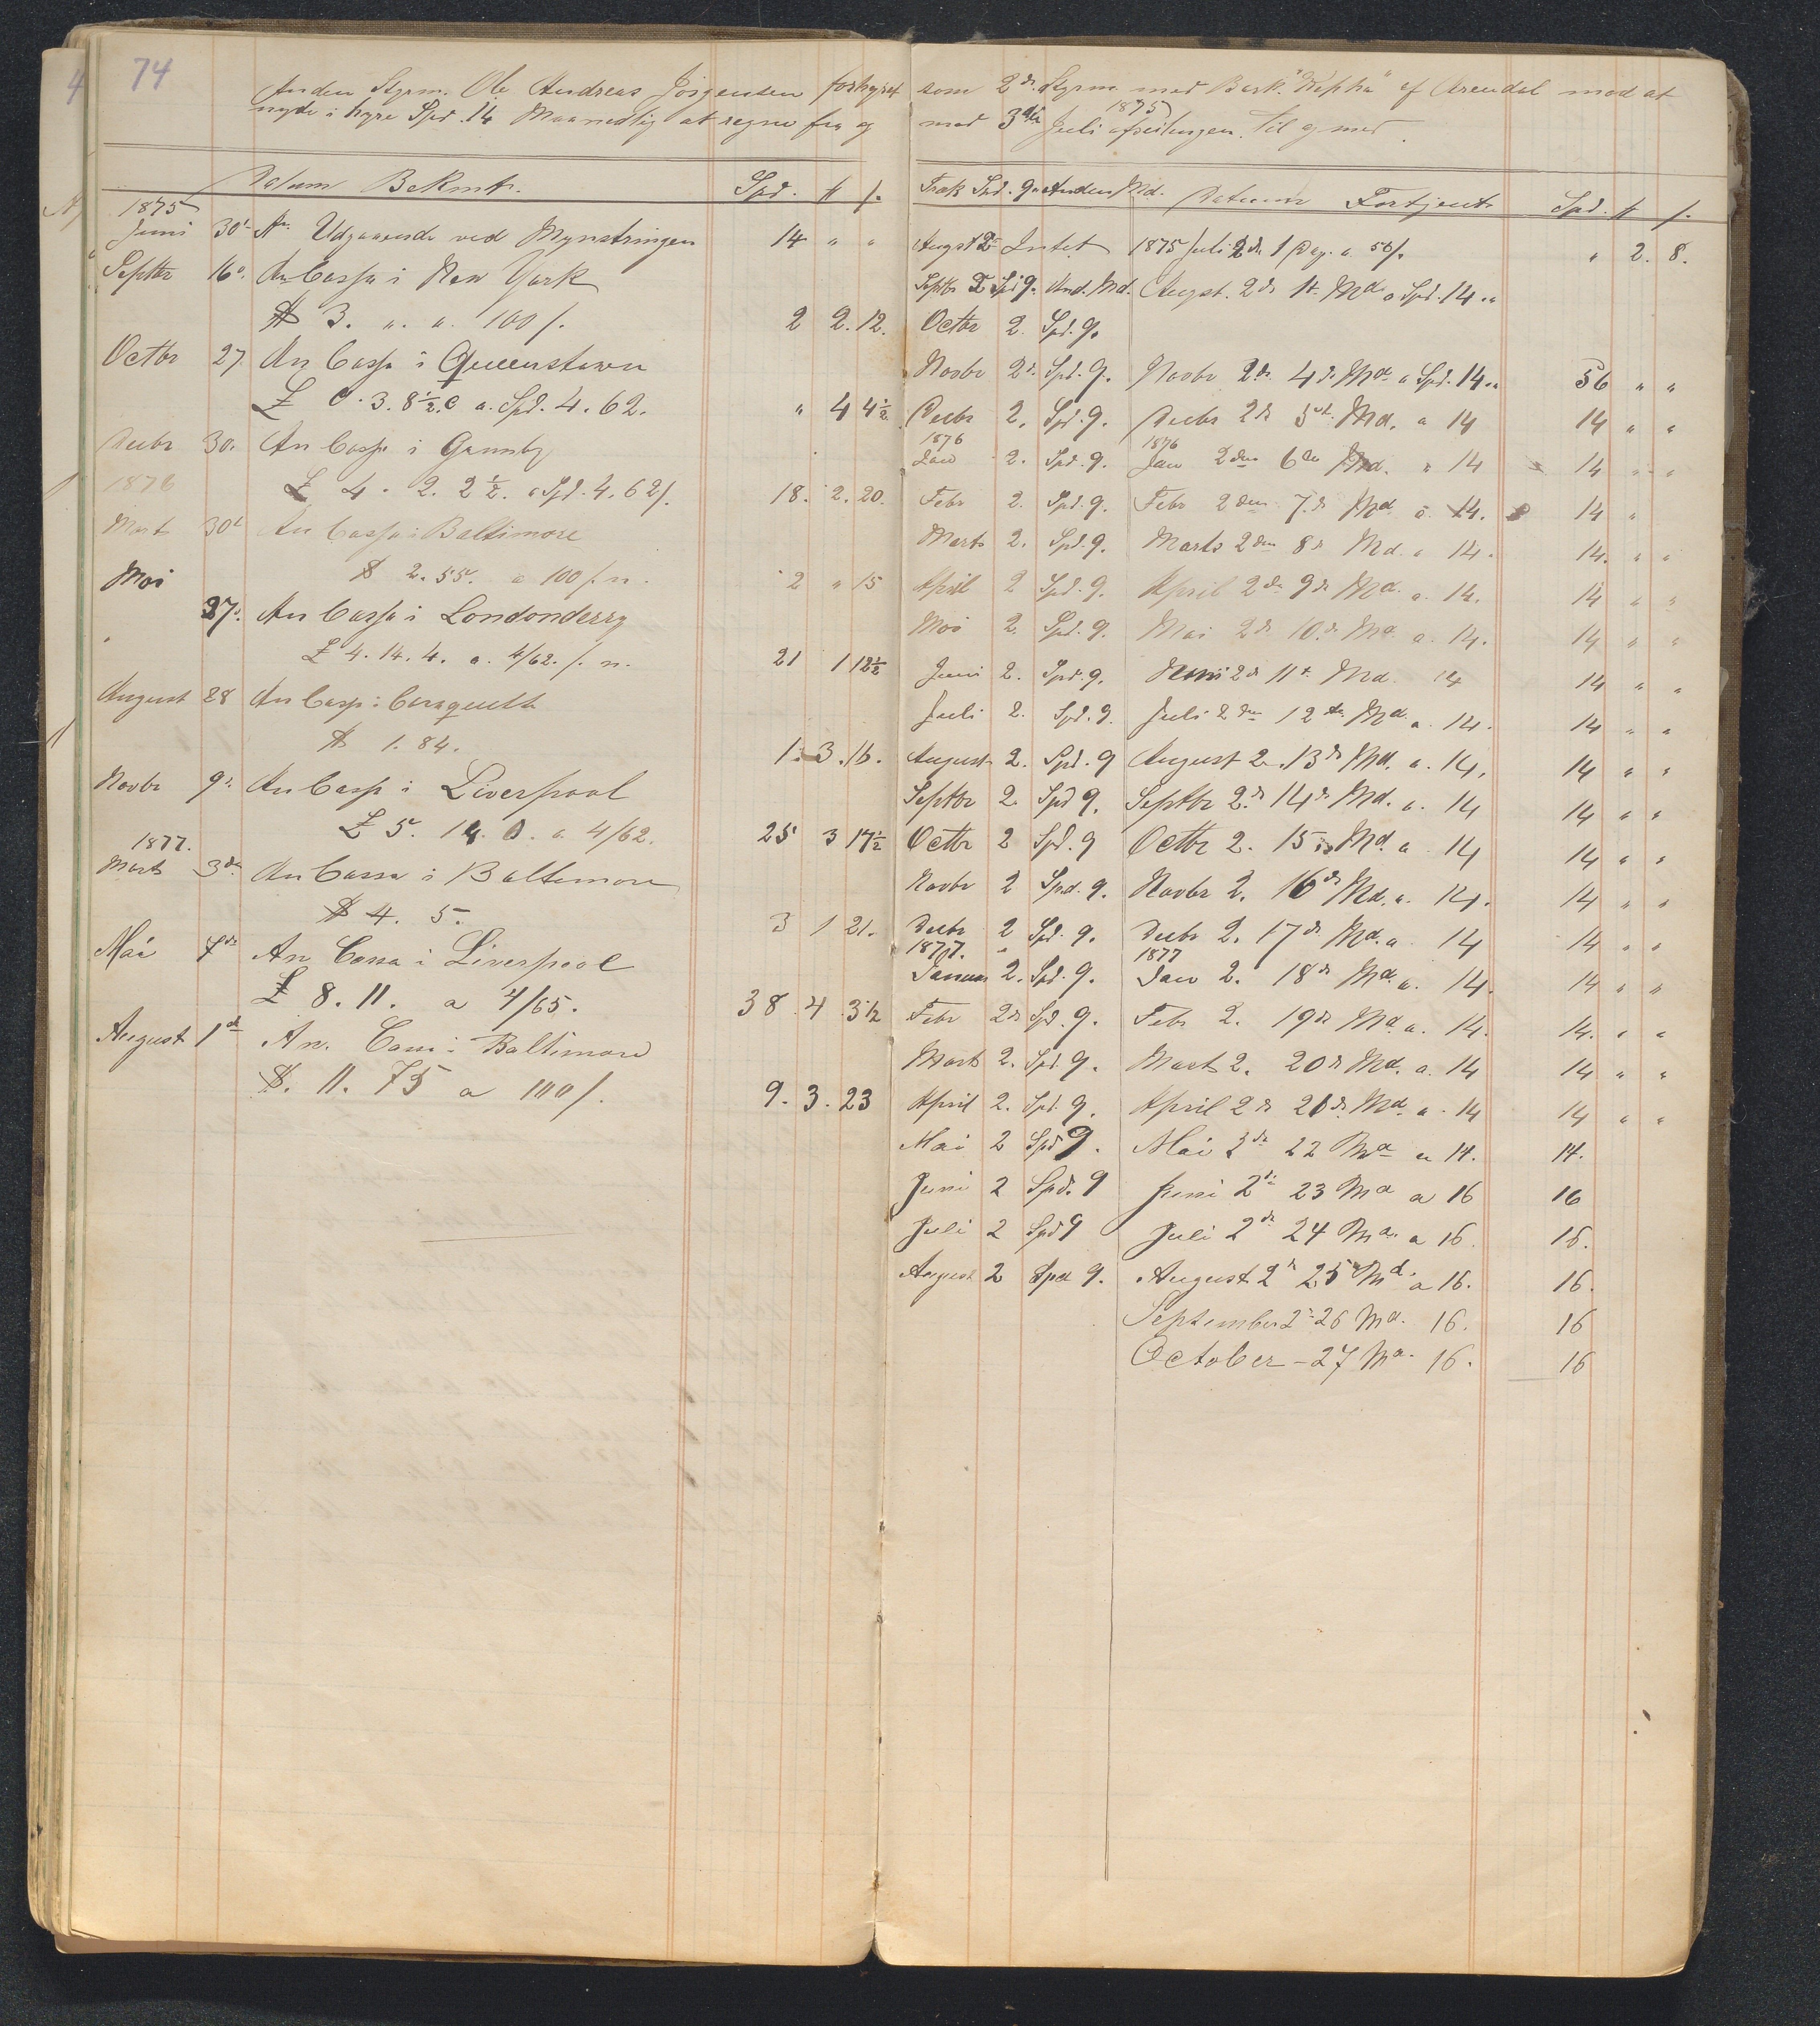 74
Anden Styrm. Ole Andreas Jörgensen forhyret som 2de Styrm med Bark. "Kepha" af Arendal mod at
nyde i hyre Spd. 14 Maanedlig at regne fra og med 3die Juli 1875 afseilingen. til og med
Datum Bekmt. Spd. # /.
1875
Juni 30t An Udgaaende ved Mynstringen 14 " "
Septbr 16d. An Cassa i New York
$ 3. " a. 100 /. 2 2. 12.
Octbr 27. An Cassa i Queenstown
£ 0. 3. 8½. a. Spd. 4. 62. " 4 4½
Decbr 30. An Cassa i
1876 £ 4. 2. 2½. a Spd. 4. 62/. 18. 2. 20.
Mart 30t An Cassa i Baltimore
$ 2. 55. a 100 /. n. 2 " 15
Mai
27d. An Cassa i Londonderry
£ 4. 14. 4. a. 4/62. /. n. 21 1 12½
August 28 An Cassa i
$ 1. 84. 1. 3. 16.
Novbr 9d. An Cassa i Liverpool
£ 5. 14. 0. a. 4/62. 25 3 17½
1877.
Mart 3de An Cassa i Baltimore
$ 4. 5. 3 1 21.
Mai 7de An Cassa i Liverpool
£ 8. 11. a 4/65. 38. 4 3½
August 1st An. Cassa i Baltimore
$. 11. 75 a 100/. 9. 3. 23
Træk Spd. 9. Anden Md. Datum Fortjent Spd. # /.
Augst 2de Intet 1875 Juli 2de 1 Dag. a 56/. " 2. 8.
Septbr 2 Spd 9. And. Md. Augst. 2de 1t. Md a Spd. 14. "
Octbr 2. Spd. 9.
Novbr 2de. Spd. 9. Novbr 2de. 4de Md a Spd. 14. " 56 " "
Decbr 2. Spd. 9. Decbr 2de 5t. Md. a 14 14 " "
1876 1876
Jan 2. Spd. 9. Jan 2den 6te Md. a 14 14 " "
Febr 2. Spd. 9. Febr 2den 7de Md a. 14. 14 "
Marts 2. Spd. 9. Marts 2den 8de Md. a 14. 14. " "
April 2 Spd. 9. April 2de 9de Md. a. 14. 14 " "
Mai 2. Spd. 9. Mai 2de 10de Md. a. 14. 14 " "
Juni 2. Spd. 9. Juni 2de 11t. Md. 14 14 " "
Juli 2. Spd. 9. Juli 2den 12te Md. a. 14. 14 " "
August 2. Spd. 9 August 2. 13de Md. a. 14. 14 " "
Septbr 2. Spd 9. Septbr 2de 14de Md. a. 14 14 " "
Octbr 2 Spd. 9 Octbr 2. 15de Md. a 14 14 " "
Novbr 2 Spd. 9. Novbr 2. 16de Md. a. 14. 14 " "
Decbr 2 Spd. 9. Decbr 2. 17de Md. a 14 14 " "
1877. 1877
Januar 2. Spd. 9. Jan 2. 18de Md. a. 14. 14 " "
Febr 2de Spd. 9. Febr 2. 19de Md. a. 14. 14. " "
Mart 2. Spd. 9. Mart 2. 20de Md. a. 14 14 " "
April 2. Spd. 9. April 2de 21de. Md a. 14 14 " "
Mai 2 Spd 9. Mai 2de 22 Md a 14. 14.
Juni 2 Spd. 9 Juni 2de 23 Md a 16 16
Juli 2 Spd 9 Juli 2de 24 Md. a 16. 16.
August 2 Spd 9. August 2de 25 Md. a 16. 16.
September 2de 26 Md. 16. 16
October - 27 Md. 16. 16